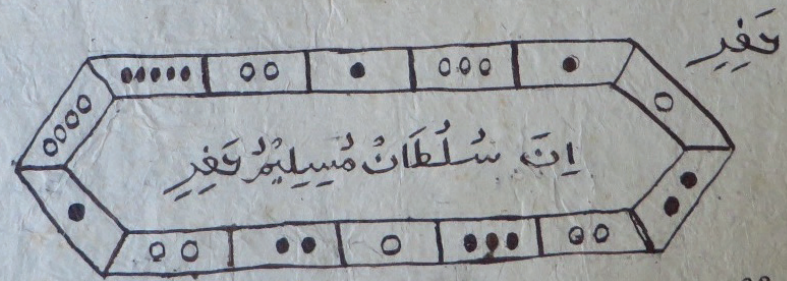 كَفِرِ
اِنَ سُلُطَانْ مُسِيلِيمُ كَفِرِ